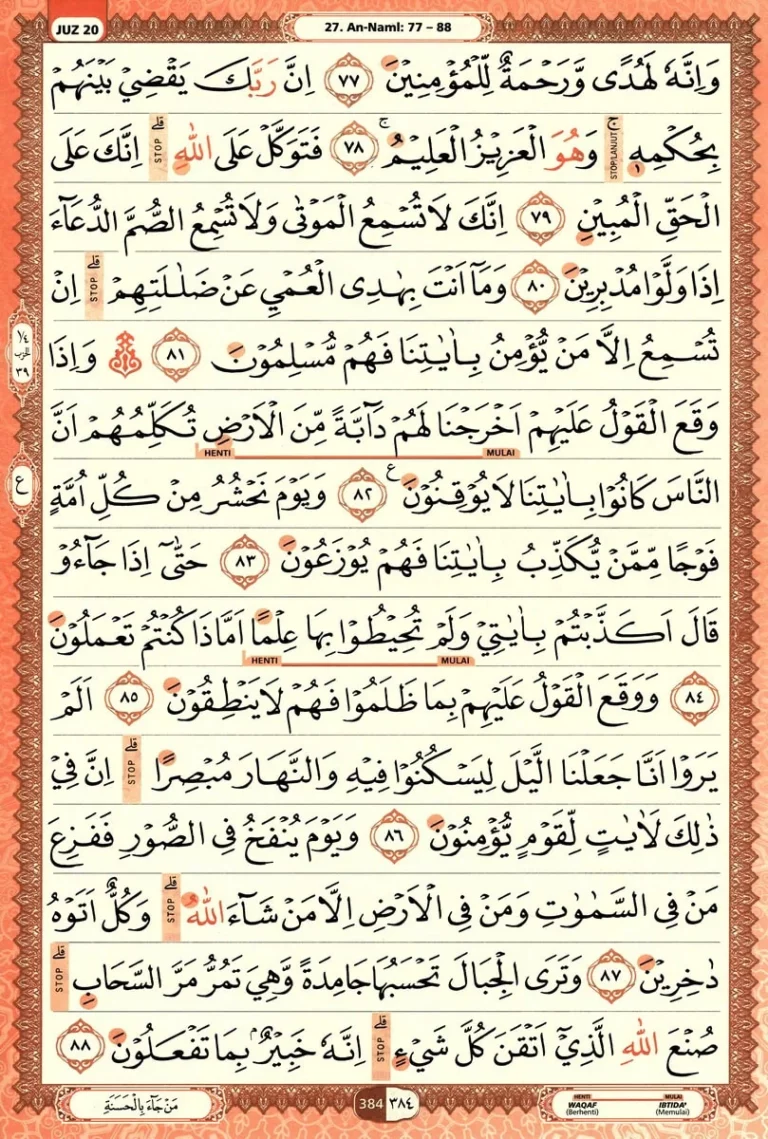 JUZ 20
27. An-Naml: 77 – 88
وَاِنَّهٗ لَهُدًى وَّرَحْمَةٌ لِّلْمُؤْمِنِيْنَ ٧٧ اِنَّ رَبَّكَ يَقْضِيْ بَيْنَهُمْ
بِحُكْمِهٖۚ STOP/LANJUT وَهُوَ الْعَزِيْزُ الْعَلِيْمُۚ ٧٨ فَتَوَكَّلْ عَلَى اللّٰهِ ۗ STOP اِنَّكَ عَلَى
الْحَقِّ الْمُبِيْنِ ٧٩ اِنَّكَ لَا تُسْمِعُ الْمَوْتٰى وَلَا تُسْمِعُ الصُّمَّ الدُّعَاۤءَ
اِذَا وَلَّوْا مُدْبِرِيْنَ ٨٠ وَمَآ اَنْتَ بِهٰدِى الْعُمْيِ عَنْ ضَلٰلَتِهِمْ ۗ STOP اِنْ
تُسْمِعُ اِلَّا مَنْ يُّؤْمِنُ بِاٰيٰتِنَا فَهُمْ مُّسْلِمُوْنَ ٨١ ۞ وَاِذَا
وَقَعَ الْقَوْلُ عَلَيْهِمْ اَخْرَجْنَا لَهُمْ دَاۤبَّةً مِّنَ الْاَرْضِ تُكَلِّمُهُمْ اَنَّ
HENTI MULAI
النَّاسَ كَانُوْا بِاٰيٰتِنَا لَا يُوْقِنُوْنَ ࣖ ٨٢ وَيَوْمَ نَحْشُرُ مِنْ كُلِّ اُمَّةٍ
فَوْجًا مِّمَّنْ يُّكَذِّبُ بِاٰيٰتِنَا فَهُمْ يُوْزَعُوْنَ ٨٣ حَتّٰٓى اِذَا جَاۤءُوْ
قَالَ اَكَذَّبْتُمْ بِاٰيٰتِيْ وَلَمْ تُحِيْطُوْا بِهَا عِلْمًا اَمَّاذَا كُنْتُمْ تَعْمَلُوْنَ
HENTI MULAI
٨٤ وَوَقَعَ الْقَوْلُ عَلَيْهِمْ بِمَا ظَلَمُوْا فَهُمْ لَا يَنْطِقُوْنَ ٨٥ اَلَمْ
يَرَوْا اَنَّا جَعَلْنَا الَّيْلَ لِيَسْكُنُوْا فِيْهِ وَالنَّهَارَ مُبْصِرًا ۗ STOP اِنَّ فِيْ
ذٰلِكَ لَاٰيٰتٍ لِّقَوْمٍ يُّؤْمِنُوْنَ ٨٦ وَيَوْمَ يُنْفَخُ فِى الصُّوْرِ فَفَزِعَ
مَنْ فِى السَّمٰوٰتِ وَمَنْ فِى الْاَرْضِ اِلَّا مَنْ شَاۤءَ اللّٰهُ ۗ STOP وَكُلٌّ اَتَوْهُ
دٰخِرِيْنَ ٨٧ وَتَرَى الْجِبَالَ تَحْسَبُهَا جَامِدَةً وَّهِيَ تَمُرُّ مَرَّ السَّحَابِ ۗ STOP
صُنْعَ اللّٰهِ الَّذِيْٓ اَتْقَنَ كُلَّ شَيْءٍ ۗ STOP اِنَّهٗ خَبِيْرٌ ۢ بِمَا تَفْعَلُوْنَ ٨٨
١/٤ الحزب ٣٩
ع
مَنْ جَاۤءَ بِالْحَسَنَةِ
384 ٣٨٤
HENTI MULAI
WAQAF IBTIDA'
(Berhenti) (Memulai)